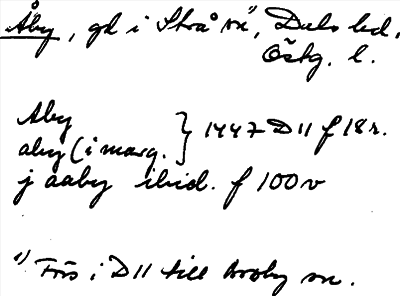 Åby, gd i Strå sn¹⁾, Dals hd,
Östg. l.
Aby
aby (i marg. } 1447 D 11 f 18 r.
j aaby ibid. f 100 v
¹⁾ Förs i D 11 till Oroby sn.